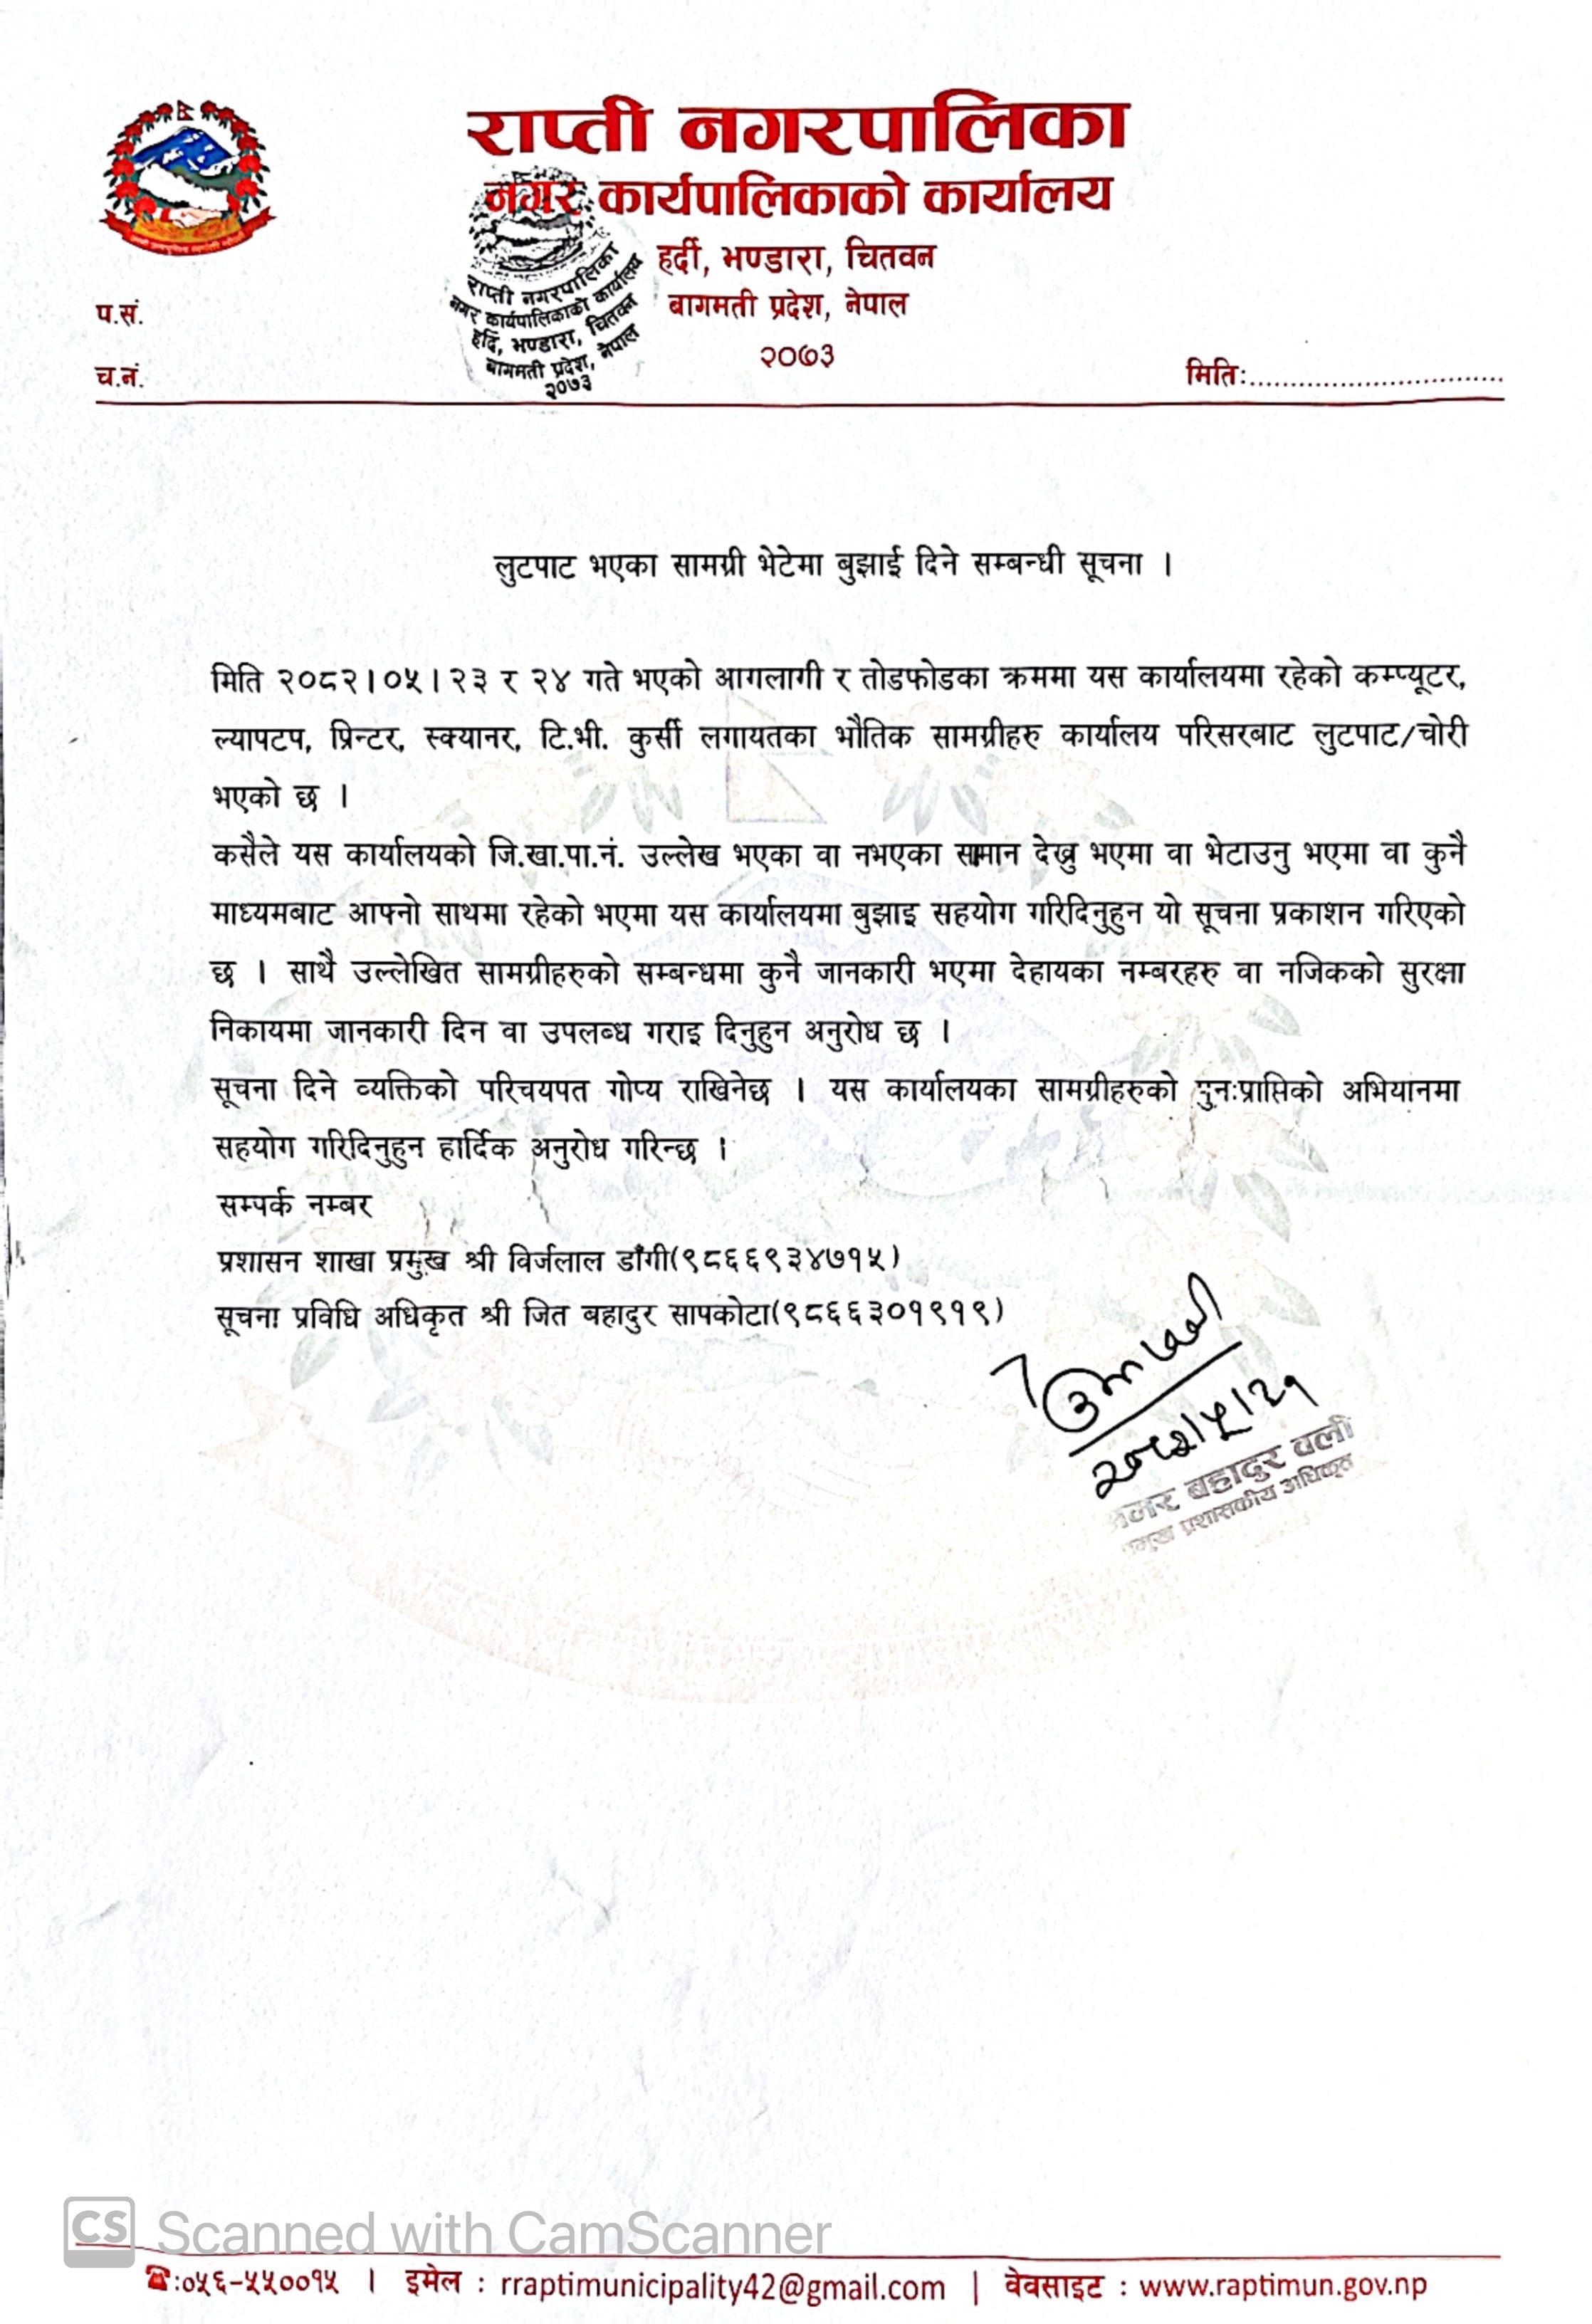 राप्ती नगरपालिका
नगर कार्यपालिकाको कार्यालय
हर्दी, भण्डारा, चितवन
बागमती प्रदेश, नेपाल
२०७३
राप्ती नगरपालिका
नगर कार्यपालिकाको कार्यालय
हर्दि, भण्डारा, चितवन
बागमती प्रदेश, नेपाल
२०७३
प.सं.
च.नं.
मितिः..............................
लुटपाट भएका सामग्री भेटेमा बुझाई दिने सम्बन्धी सूचना ।
मिति २०८२।०५।२३ र २४ गते भएको आगलागी र तोडफोडका क्रममा यस कार्यालयमा रहेको कम्प्यूटर,
ल्यापटप, प्रिन्टर, स्क्यानर, टि.भी. कुर्सी लगायतका भौतिक सामग्रीहरु कार्यालय परिसरबाट लुटपाट/चोरी
भएको छ ।
कसैले यस कार्यालयको जि.खा.पा.नं. उल्लेख भएका वा नभएका सामान देख्नु भएमा वा भेटाउनु भएमा वा कुनै
माध्यमबाट आफ्नो साथमा रहेको भएमा यस कार्यालयमा बुझाइ सहयोग गरिदिनुहुन यो सूचना प्रकाशन गरिएको
छ । साथै उल्लेखित सामग्रीहरुको सम्बन्धमा कुनै जानकारी भएमा देहायका नम्बरहरु वा नजिकको सुरक्षा
निकायमा जानकारी दिन वा उपलब्ध गराइ दिनुहुन अनुरोध छ ।
सूचना दिने व्यक्तिको परिचयपत गोप्य राखिनेछ । यस कार्यालयका सामग्रीहरुको पुनःप्राप्तिको अभियानमा
सहयोग गरिदिनुहुन हार्दिक अनुरोध गरिन्छ ।
सम्पर्क नम्बर
प्रशासन शाखा प्रमुख श्री विर्जलाल डाँगी(९८६६९३४७१५)
सूचना प्रविधि अधिकृत श्री जित बहादुर सापकोटा(९८६६३०१९१९)
बहादुर वली
प्रमुख प्रशासकीय अधिकृत
CS Scanned with CamScanner
☎:०५६-५५००१५ । इमेल : rraptimunicipality42@gmail.com | वेवसाइट : www.raptimun.gov.np